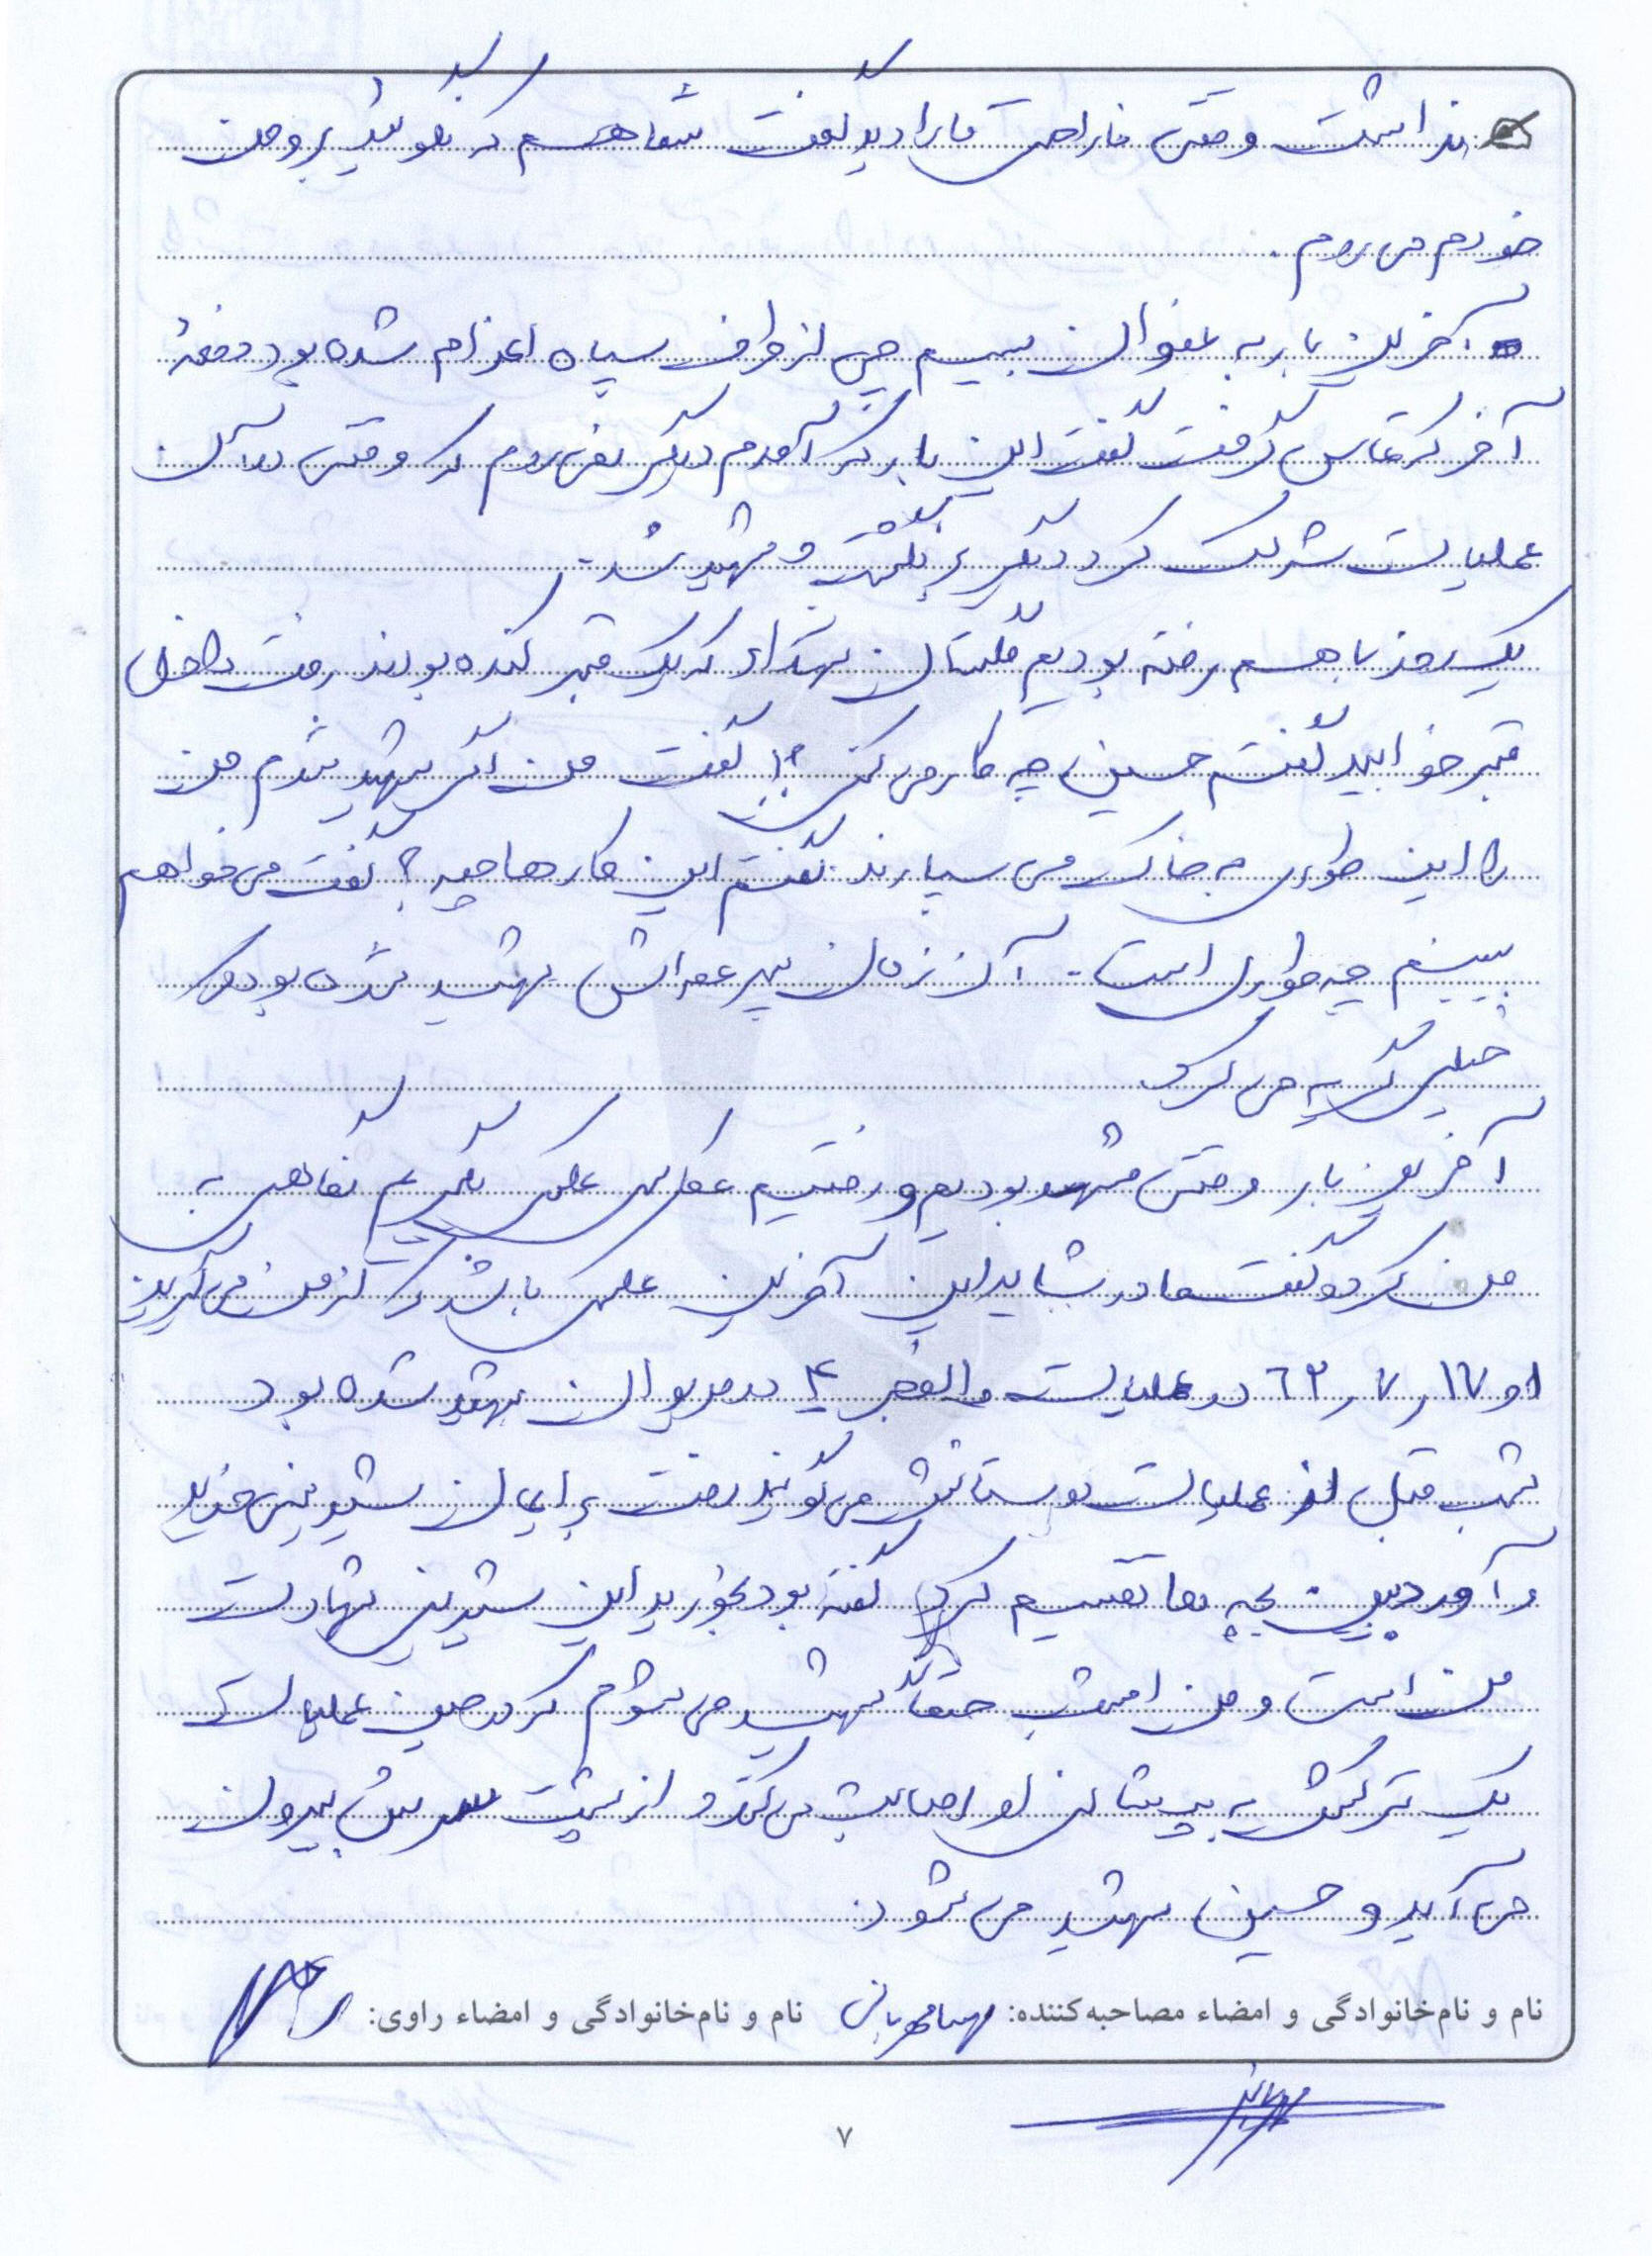 نداشت وقتی ناراحتی ما را دید گفت شما هم که نگوئید برو من
خودم می روم.
آخرین بار به عنوان بیسیم چی از طرف سپاه اعزام شده بود دفعهٔ
آخر که تماس گرفت گفت این بار که آمدم دیگر نمی روم که وقتی در آن
عملیات شرکت کرد دیگر برنگشت و شهید شد.
یک روز با هم رفته بودیم گلستان شهدا که یک قبر کنده بودند رفت داخل
قبر خوابید گفتم حسین چه کار می کنی؟! گفت من اگر شهید شدم من
را این طوری به خاک می سپارند گفتم این کارها چیه؟ گفت می خواهم
ببینم چه طوری است. آن زمان پسر عمه اش شهید شده بود و
خیلی گریه می کرد
آخرین بار وقتی مشهد بودیم و رفتیم عکاسی عکس بگیریم نگاهی به
من کرد و گفت مادر شاید این آخرین عکسی باشد که از من می گیرید
او ۶۲/۷/۱۷ در عملیات والفجر ۴ در مریوان شهید شده بود
شب قبل از عملیات دوستانش می گویند رفت برایمان شیرینی خرید
و آورد بین بچه ها تقسیم کرد گفته بود بخورید این شیرینی شهادت
من است و من امشب حتماً شهید می شوم که در حین عملیات
یک ترکش به پیشانی او اصابت می کند و از پشت سرش بیرون
می آید و حسین شهید می شود.
نام و نام‌خانوادگی و امضاء مصاحبه‌کننده: نام و نام‌خانوادگی و امضاء راوی:
۷